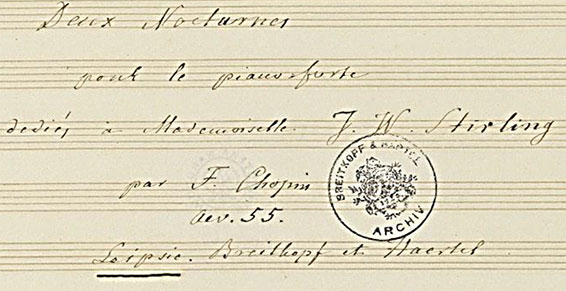 Deux Nocturnes
pour le pianoforte
dediés à Mademoiselle J. W. Stirling
par F. Chopin
Oev. 55.
Leipsic. Breitkopf et Haertel
BREITKOPF & HÄRTEL
ARCHIV